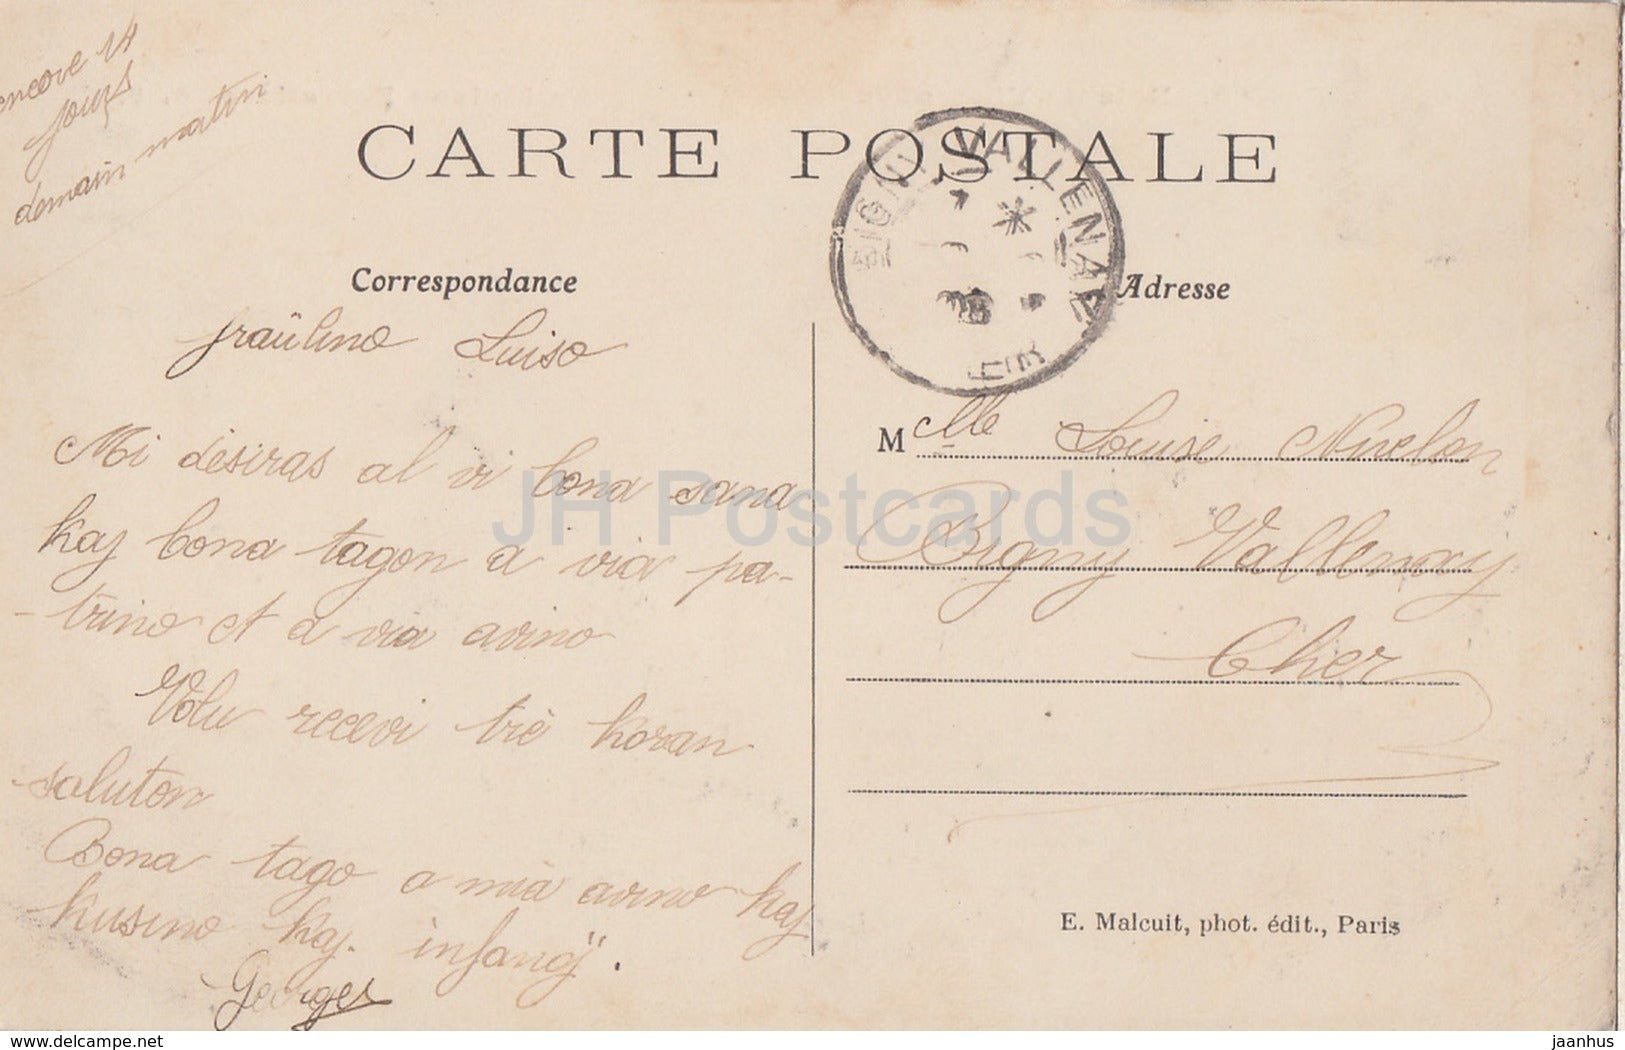 encore 14
jours
demain matin
CARTE POSTALE
BIGNY-VALLENAY
CHER
Correspondance
Adresse
fraülino Luiso
Mi desiras al vi bona sana
kaj bona tagon a via pa-
-trino et a via avino
Volu recevi trè koran
saluton
Bona tago a mia avino kaj
kusino kaj infanoj.
Georges
Melle Louise Nivelon
Bigny Vallenay
Cher
E. Malcuit, phot. édit., Paris
JH Postcards
www.delcampe.net
jaanhus